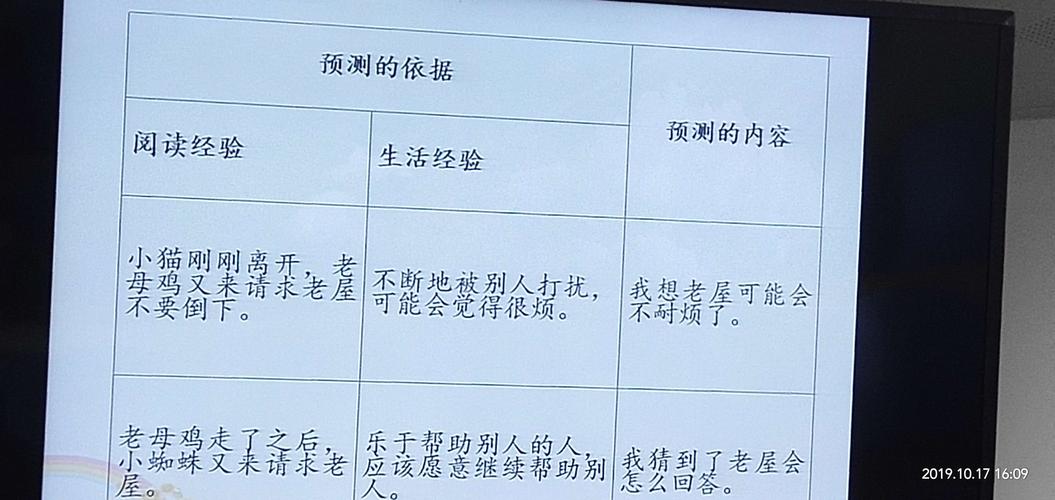 预测的依据
预测的内容
阅读经验
生活经验
小猫刚刚离开，老
母鸡又来请求老屋
不要倒下。
不断地被别人打扰，
可能会觉得很烦。
我想老屋可能会
不耐烦了。
老母鸡走了之后，
小蜘蛛又来请求老
屋。
乐于帮助别人的人，
应该愿意继续帮助别
人。
我猜到了老屋会
怎么回答。
2019.10.17 16:09